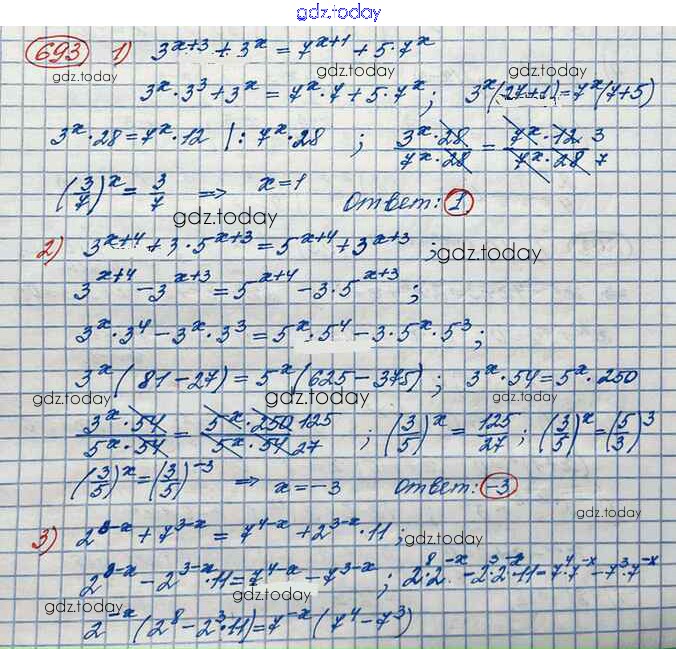 gdz.today
693 1) 3^(x+3) + 3^x = 7^(x+1) + 5·7^x
gdz.today gdz.today
3^x·3^3 + 3^x = 7^x·7 + 5·7^x; 3^x(27+1) = 7^x(7+5)
gdz.today gdz.today
3^x·28 = 7^x·12 |: 7^x·28 ; (3^x·28)/(7^x·28) = (7^x·12 3)/(7^x·28 7)
gdz.today gdz.today
(3/7)^x = 3/7 ⇒ x=1 Ответ: 1
gdz.today
2) 3^(x+4) + 3·5^(x+3) = 5^(x+4) + 3^(x+3) ;
gdz.today
3^(x+4) − 3^(x+3) = 5^(x+4) − 3·5^(x+3) ;
3^x·3^4 − 3^x·3^3 = 5^x·5^4 − 3·5^x·5^3 ;
3^x(81−27) = 5^x(625−375) ; 3^x·54 = 5^x·250
gdz.today gdz.today gdz.today
(3^x·54)/(5^x·54) = (5^x·250 125)/(5^x·54 27) ; (3/5)^x = 125/27 ; (3/5)^x = (5/3)^3
(3/5)^x = (3/5)^(−3) ⇒ x=−3 Ответ: −3
gdz.today
3) 2^(8−x) + 7^(3−x) = 7^(4−x) + 2^(3−x)·11 ;
gdz.today
2^(8−x) − 2^(3−x)·11 = 7^(4−x) − 7^(3−x) ; 2^8·2^(−x) − 2^3·2^(−x)·11 = 7^4·7^(−x) − 7^3·7^(−x)
gdz.today gdz.today
2^(−x)(2^8 − 2^3·11) = 7^(−x)(7^4 − 7^3)
gdz.today